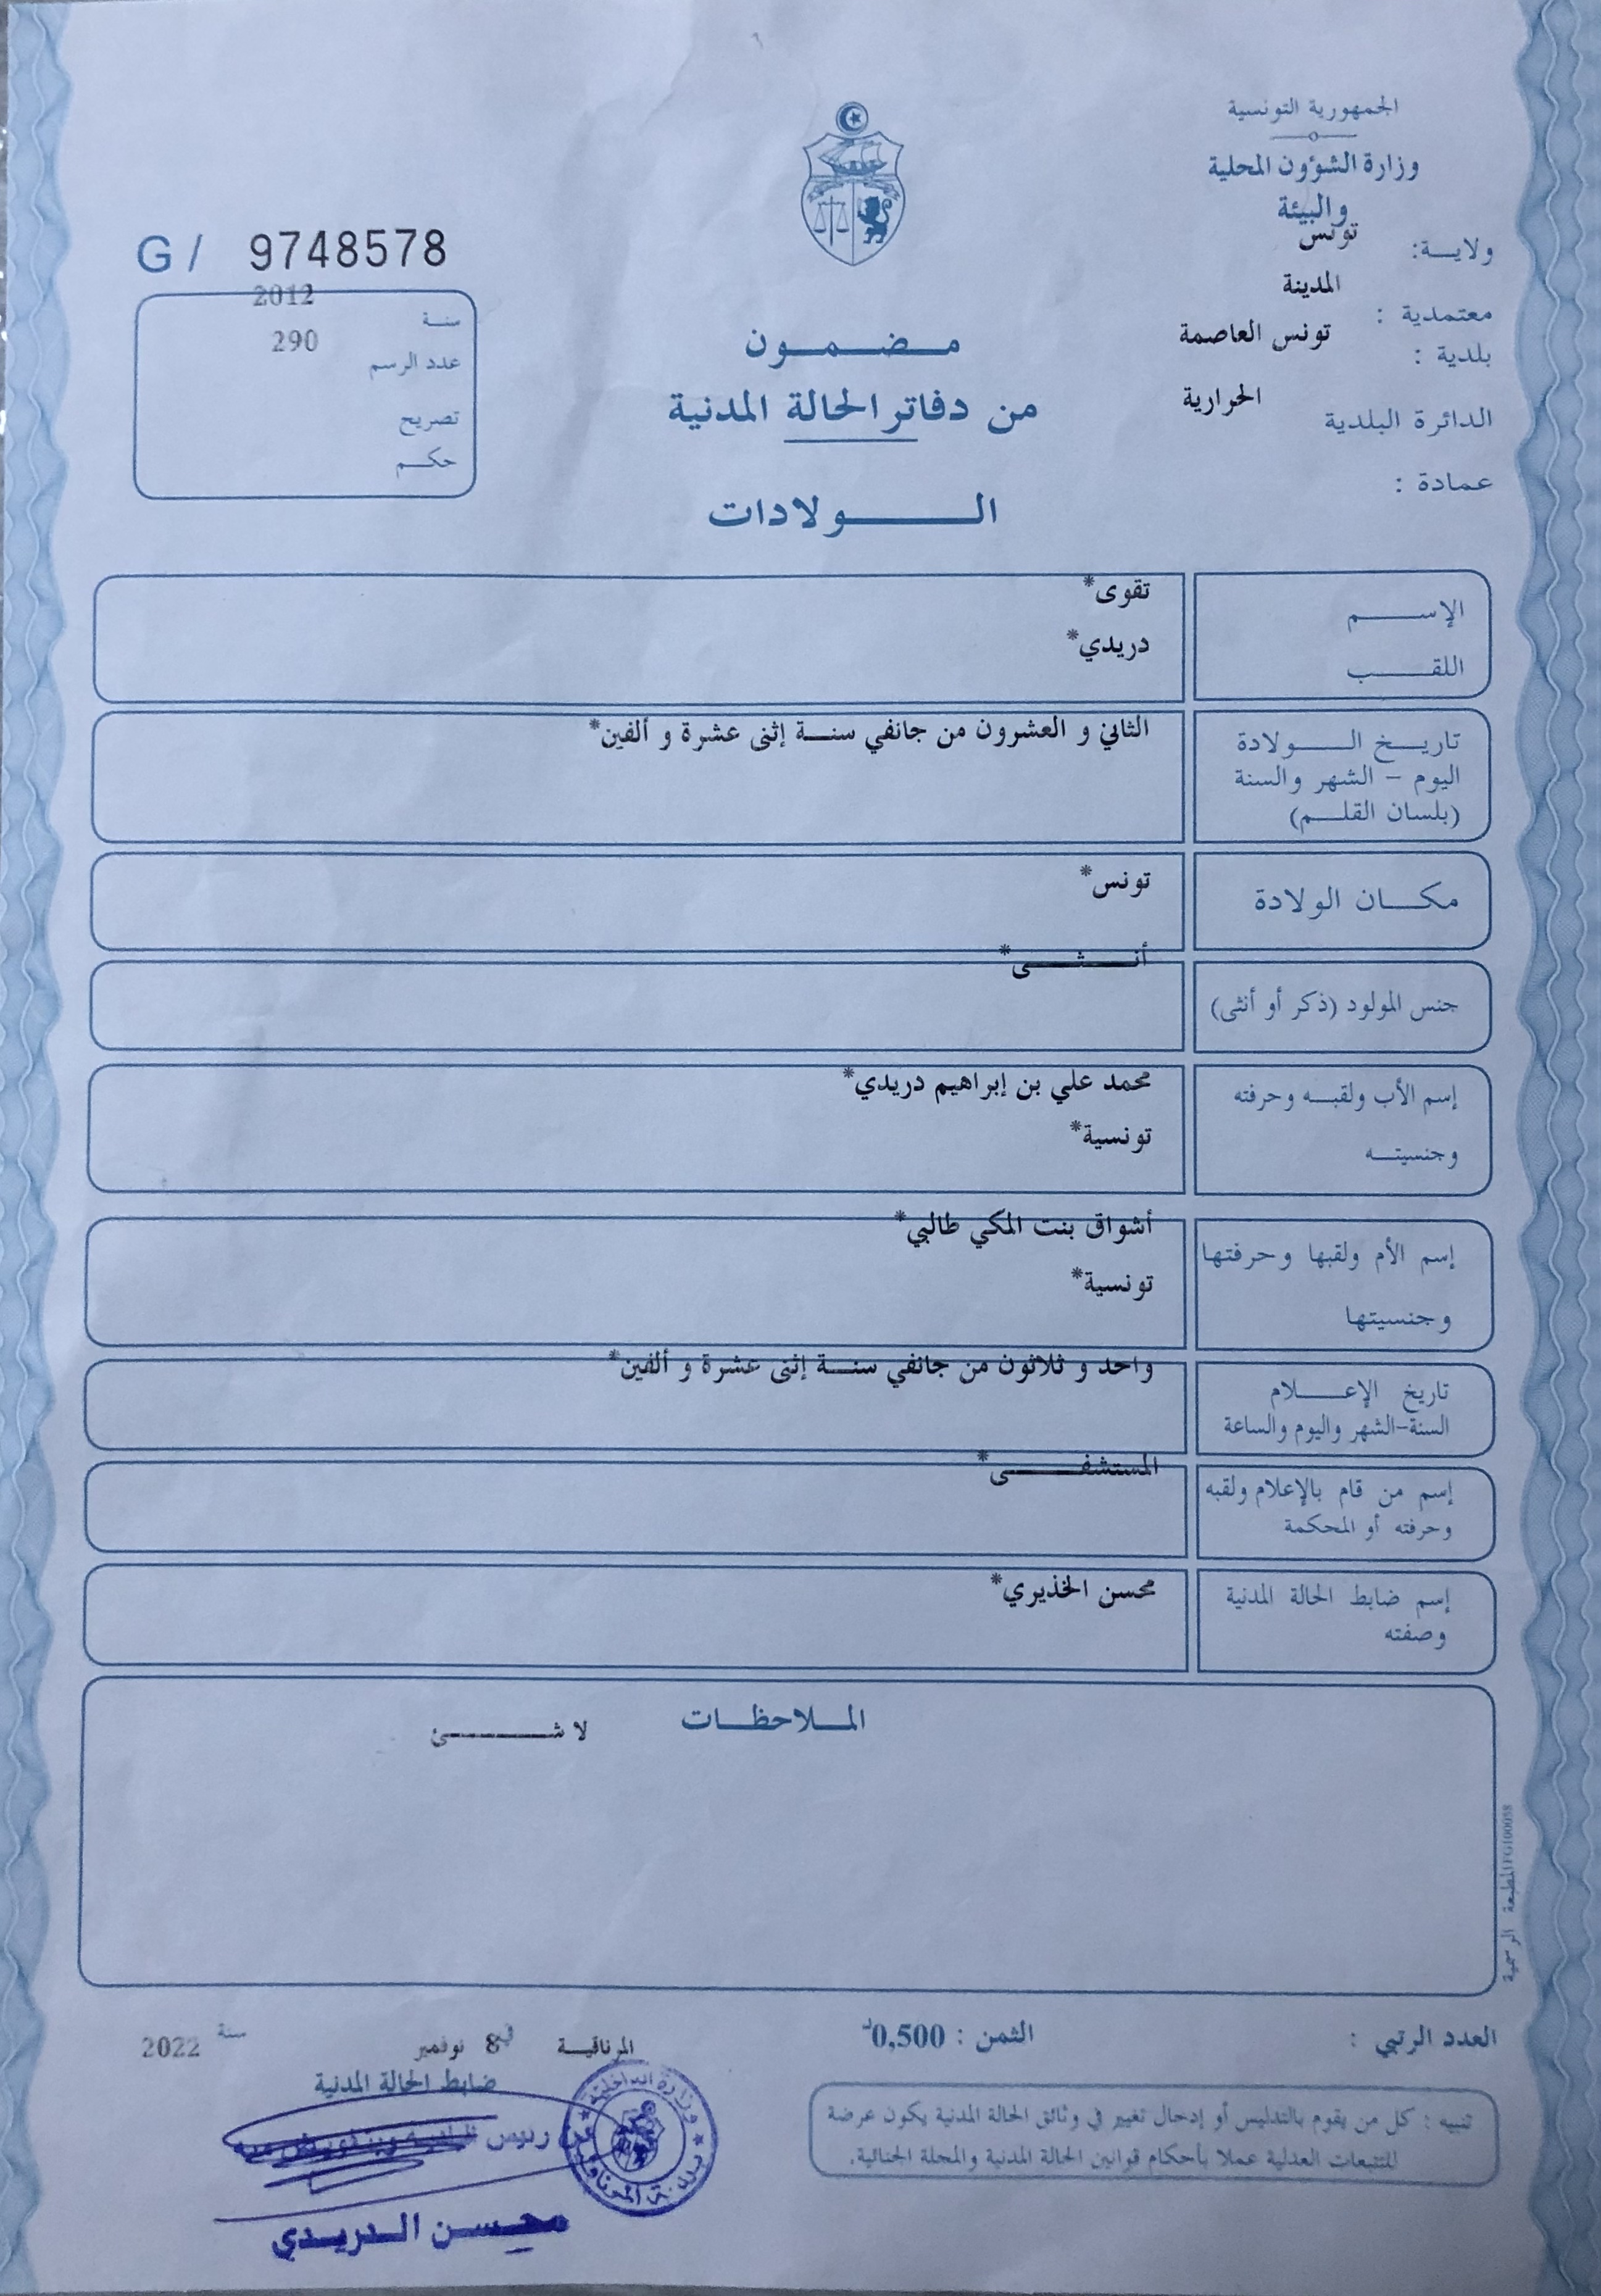 الجمهورية التونسية
وزارة الشؤون المحلية
والبيئة
ولاية: تونس
معتمدية : المدينة
بلدية : تونس العاصمة
الدائرة البلدية الحرارية
عمادة :
G/ 9748578
سنة 2012
عدد الرسم 290
تصريح
حكم
مضمون
من دفاتر الحالة المدنية
الولادات
الإسم تقوى*
اللقب دريدي*
تاريخ الولادة الثاني و العشرون من جانفي سنة إثنى عشرة و ألفين*
اليوم - الشهر والسنة
(بلسان القلم)
مكان الولادة تونس*
جنس المولود (ذكر أو أنثى) أنثى*
إسم الأب ولقبه وحرفته محمد علي بن إبراهيم دريدي*
وجنسيته تونسية*
إسم الأم ولقبها وحرفتها أشواق بنت المكي طالبي*
وجنسيتها تونسية*
تاريخ الإعلام واحد و ثلاثون من جانفي سنة إثنى عشرة و ألفين*
السنة-الشهر واليوم والساعة
إسم من قام بالإعلام ولقبه المستشفى*
وحرفته أو المحكمة
إسم ضابط الحالة المدنية محسن الخذيري*
وصفته
الملاحظات
لا شئ
المطبعة الرسمية FG100058
العدد الرتبي :
الثمن : 0,500د
المرناقية في 8 نوفمبر سنة 2022
ضابط الحالة المدنية
عن رئيس
محسن الدريدي
وزارة الداخلية
بلدية المرناقية
تنبيه : كل من يقوم بالتدليس أو إدخال تغيير في وثائق الحالة المدنية يكون عرضة
للتتبعات العدلية عملا بأحكام قوانين الحالة المدنية والمجلة الجنائية.